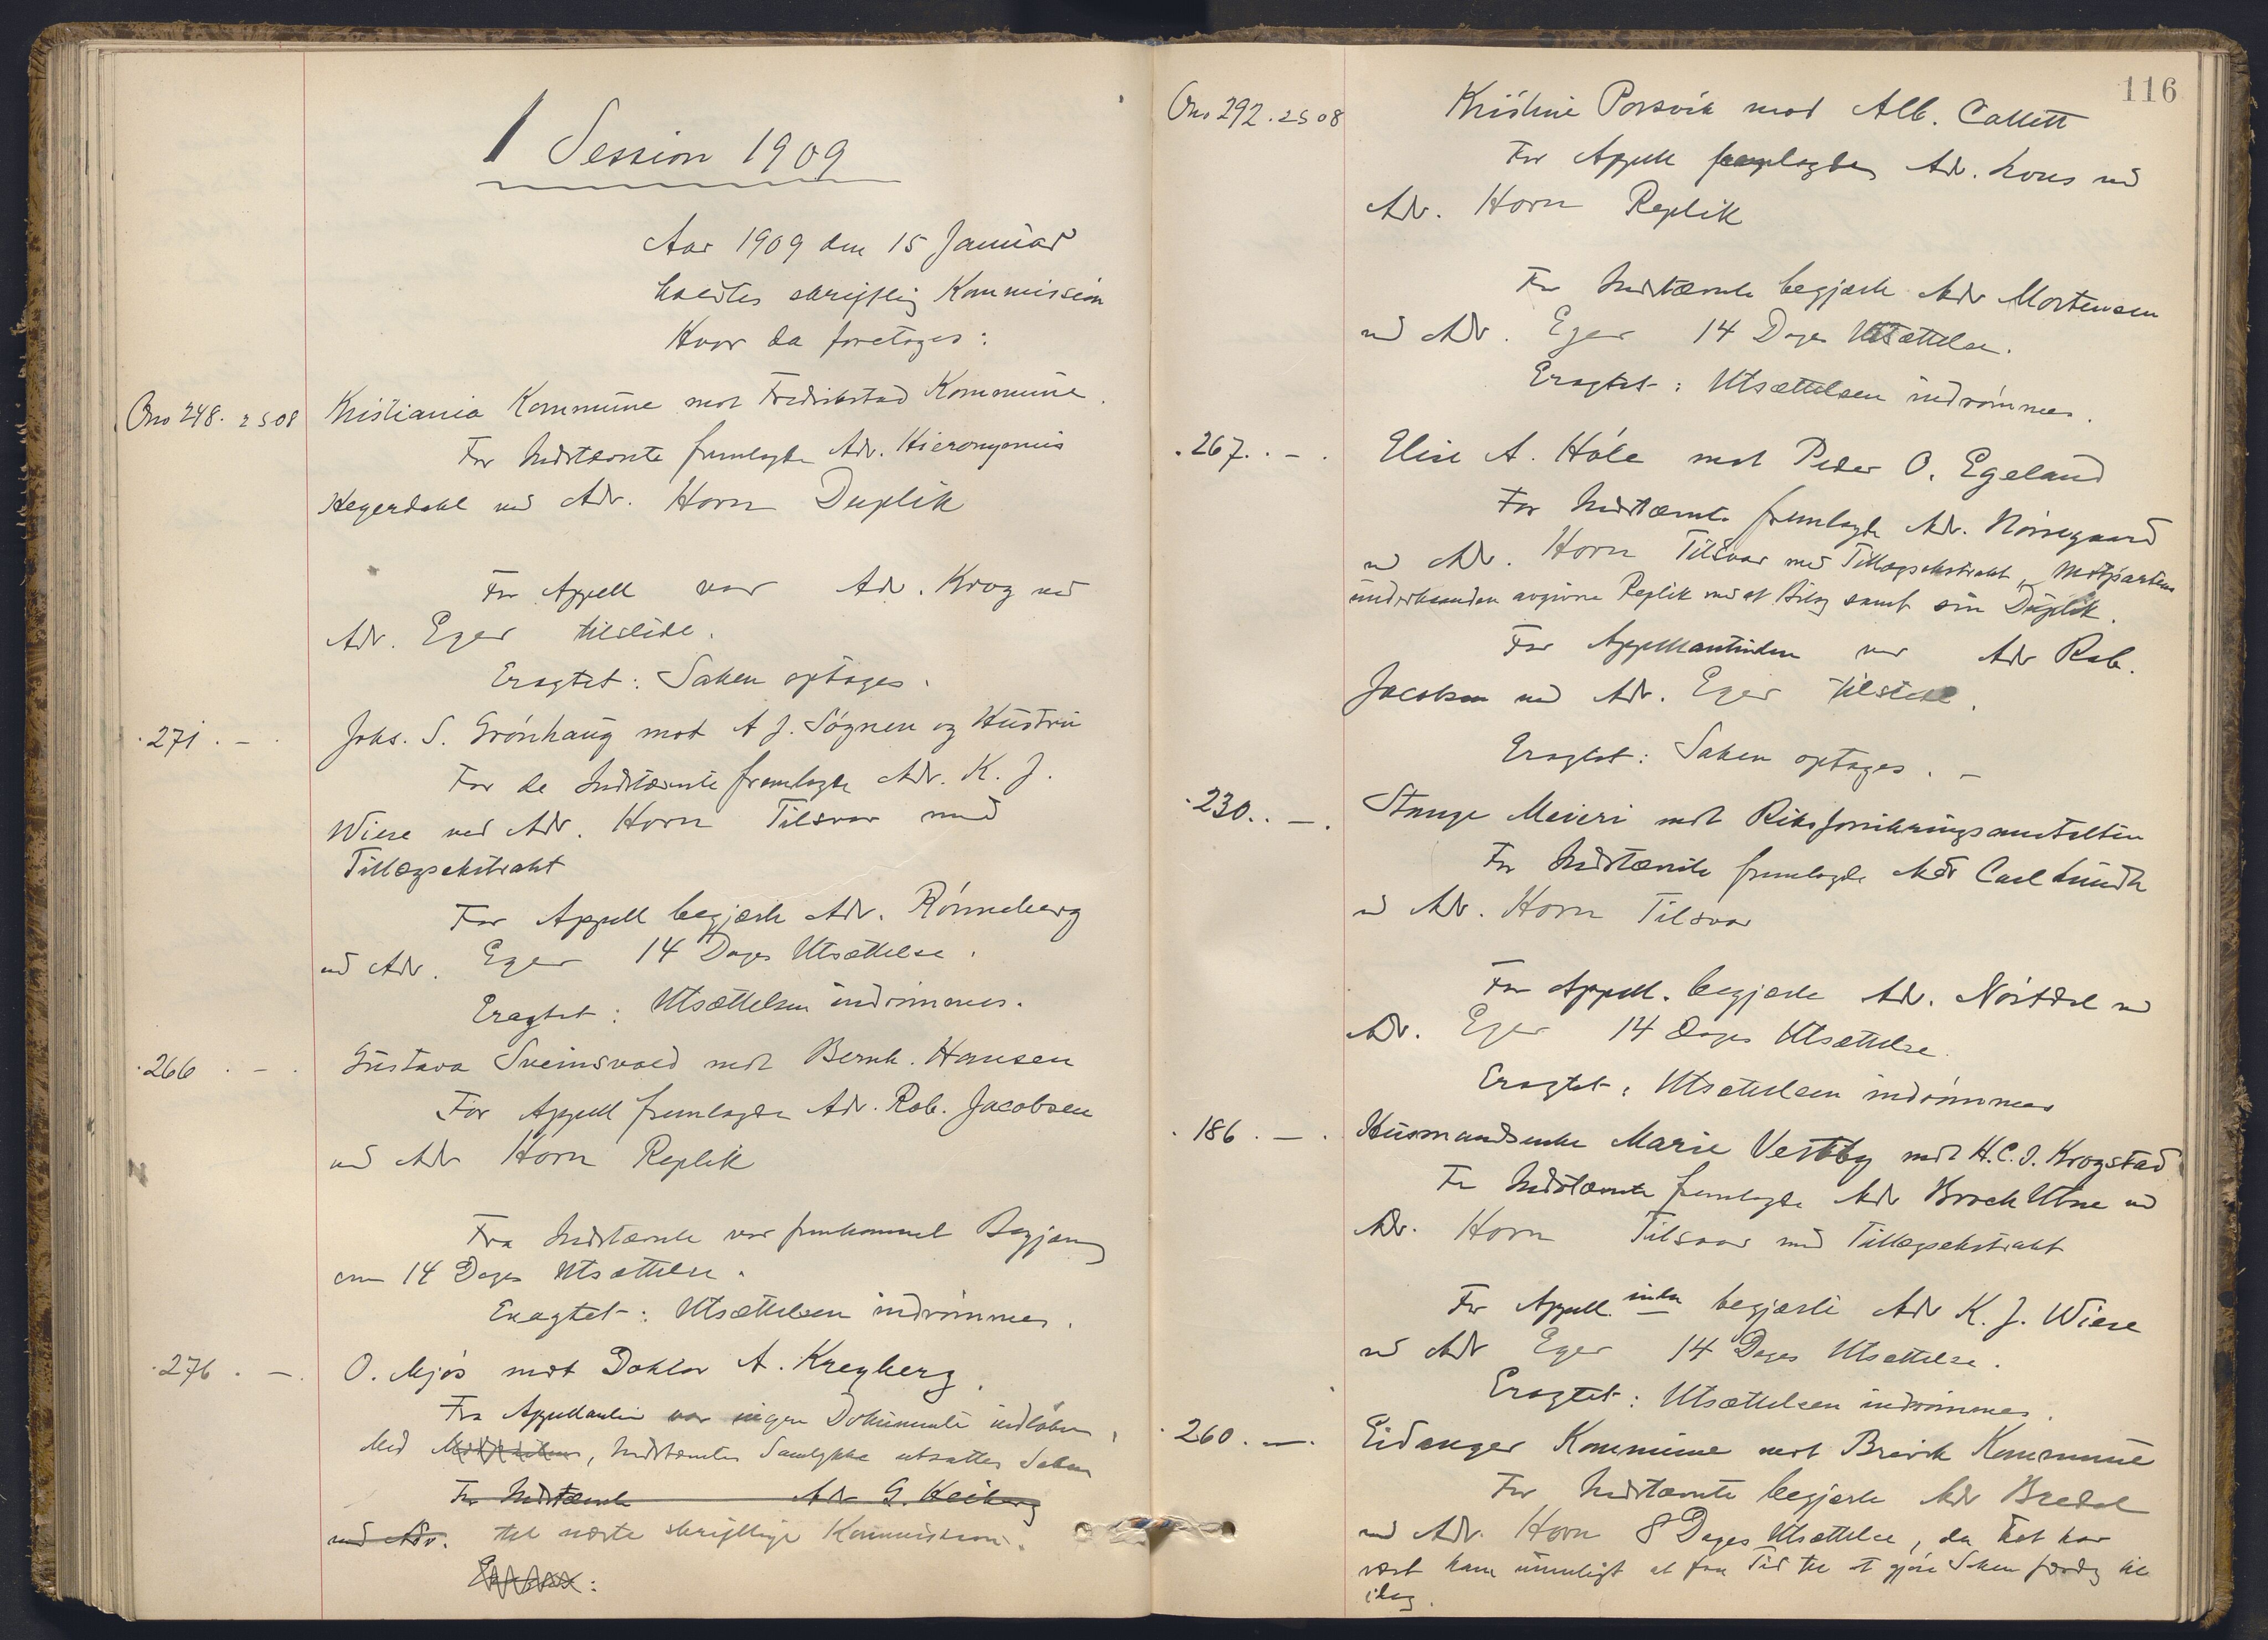 1 Session 1909
Aar 1909 den 15 Januar
holdtes skriftlig Kommission
Hvor da foretoges:
Ono 248. 2 S 08 Kristiania Kommune mot Fredrikstad Kommune.
For Indstævnte fremlagde Adv. Hieronymus
Hegerdahl ved Adv. Horn Duplik
For Appell var Adv. Krog ved
Adv. Eger tilstede.
Eragtet: Saken optages.
.271. — . Johs. S. Grönhaug mot A J. Sögnen og Hustru
For de Indstævnte fremlagde Adv. K. J.
Wiese ved Adv. Horn Tilsvar med
Tillægsekstrakt
For Appell begjærte Adv. Rönneberg
ved Adv. Eger 14 Dages Utsættelse.
Eragtet: Utsættelsen indrömmes.
.266 . — . Gustava Sveinsvold mot Bernh. Hansen
For Appell fremlagde Adv. Rob. Jacobsen
ved Adv Horn Replik
Fra Indstævnte var fremkommet Begjæring
om 14 Dages Utsættelse.
Eragtet: Utsættelsen indrömmes.
.276 . — . O. Mjös mot Doktor A. Kreyberg.
Fra Appellanten var ingen Dokumenter indlöbne,
Med , Indstævntes Samtykke utsattes Saken
For Indstævnte Adv G. Heiberg
ved Adv. til næste skriftlige Kommission.
116
Ono 292. 2 S 08 Kristine Porsvik mod Alb. Collett
For Appell fremlagdes Adv. Lous ved
Adv. Horn Replik
For Indstævnte begjærte Adv Mortensen
ved Adv. Eger 14 Dages Utsættelse.
Eragtet: Utsættelsen indrömmes.
.267. . — . Elise A. Höle mot Peder O. Egeland
For Indstævnte fremlagde Adv. Nörregaard
ved Adv. Horn Tilsvar med Tillægsekstrakt, Motpartens
underhaanden avgivne Replik med et Bilag samt sin Duplik.
For Appellantinden var Adv Rob.
Jacobsen ved Adv. Eger tilstede.
Eragtet: Saken optages. —
.230. . — . Stange Meieri mot Riksforsikringsanstalten
For Indstævnte fremlagde Adv Carl Lundh
ved Adv. Horn Tilsvar
For Appell. begjærte Adv. Nördal ved
Adv. Eger 14 Dages Utsættelse.
Eragtet: Utsættelsen indrömmes
. 186 . — . Husmandsenke Marie Vestby mot H.C.J. Krogstad
For Indstævnte fremlagde Adv Broch Utne ved
Adv. Horn Tilsvar med Tillægsekstrakt
For Appell. inden begjærte Adv K. J. Wiese
ved Adv Eger 14 Dages Utsættelse.
Eragtet: Utsættelsen indrömmes.
. 260. — . Eidanger Kommune mot Brevik Kommune
For Indstævnte begjærte Adv Bredal
ved Adv. Horn 8 Dages Utsættelse, da det har
vært ham umuligt at faa Tid til at gjöre Saken færdig til
idag.